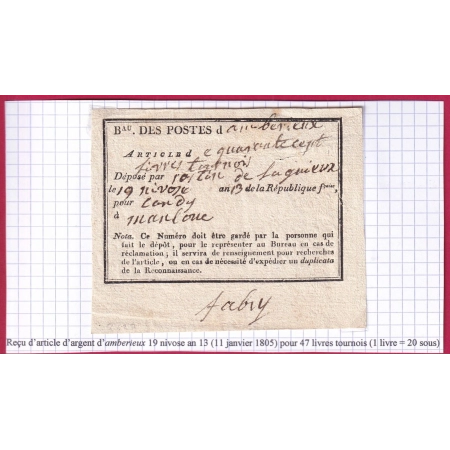 Bau. DES POSTES d amberieux
ARTICLE d e quarante sept
livres tournois
Déposé par de
le 19 nivose an 13 de la République frse,
pour
à
Nota. Ce Numéro doit être gardé par la personne qui
fait le dépôt, pour le représenter au Bureau en cas de
réclamation; il servira de renseignement pour recherches
de l'article, ou en cas de nécessité d'expédier un duplicata
de la Reconnaissance.
fabry
Reçu d'article d'argent d'amberieux 19 nivose an 13 (11 janvier 1805) pour 47 livres tournois (1 livre = 20 sous)